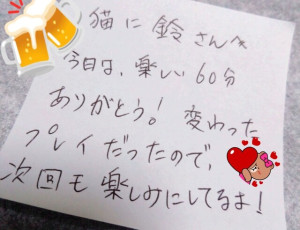 猫に鈴さんへ
今日は、楽しい60分
ありがとう!変わった
プレイだったので、
次回も楽しみにしてるよ!